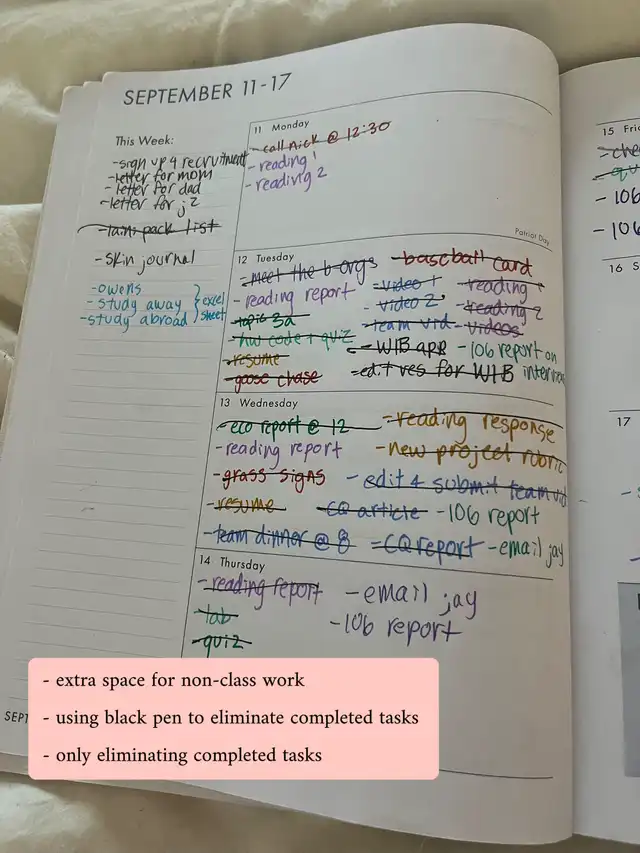 SEPTEMBER 11-17
This Week:
-sign up 4 recruitment
-letter for mom
-letter for dad
-letter for j2
pack list
-skin journal
-owens
-study away
-study abroad
excel
sheet
11 Monday
-call nick @ 12:30
-reading 1
-reading 2
Patriot Day
12 Tuesday
-meet the b-orgs
-reading report
-topic 3a
-hw code + quiz
-resume
-goose chase
-baseball card
-video 1
-reading 1
-video 2
-reading 2
-team vid
-videos
-WIB app
-106 report on
-edit res for WIB
interview
13 Wednesday
-eco report @ 12
-reading report
-grass signs
-resume
-team dinner @ 8
-reading response
-new project rubric
-edit 4 submit team vid
-CQ article
-106 report
-CQ report
-email jay
14 Thursday
-reading report
-lab
-quiz
-email jay
-106 report
15 Fri
-106
-106
16 S
17
SEPT
- extra space for non-class work
- using black pen to eliminate completed tasks
- only eliminating completed tasks